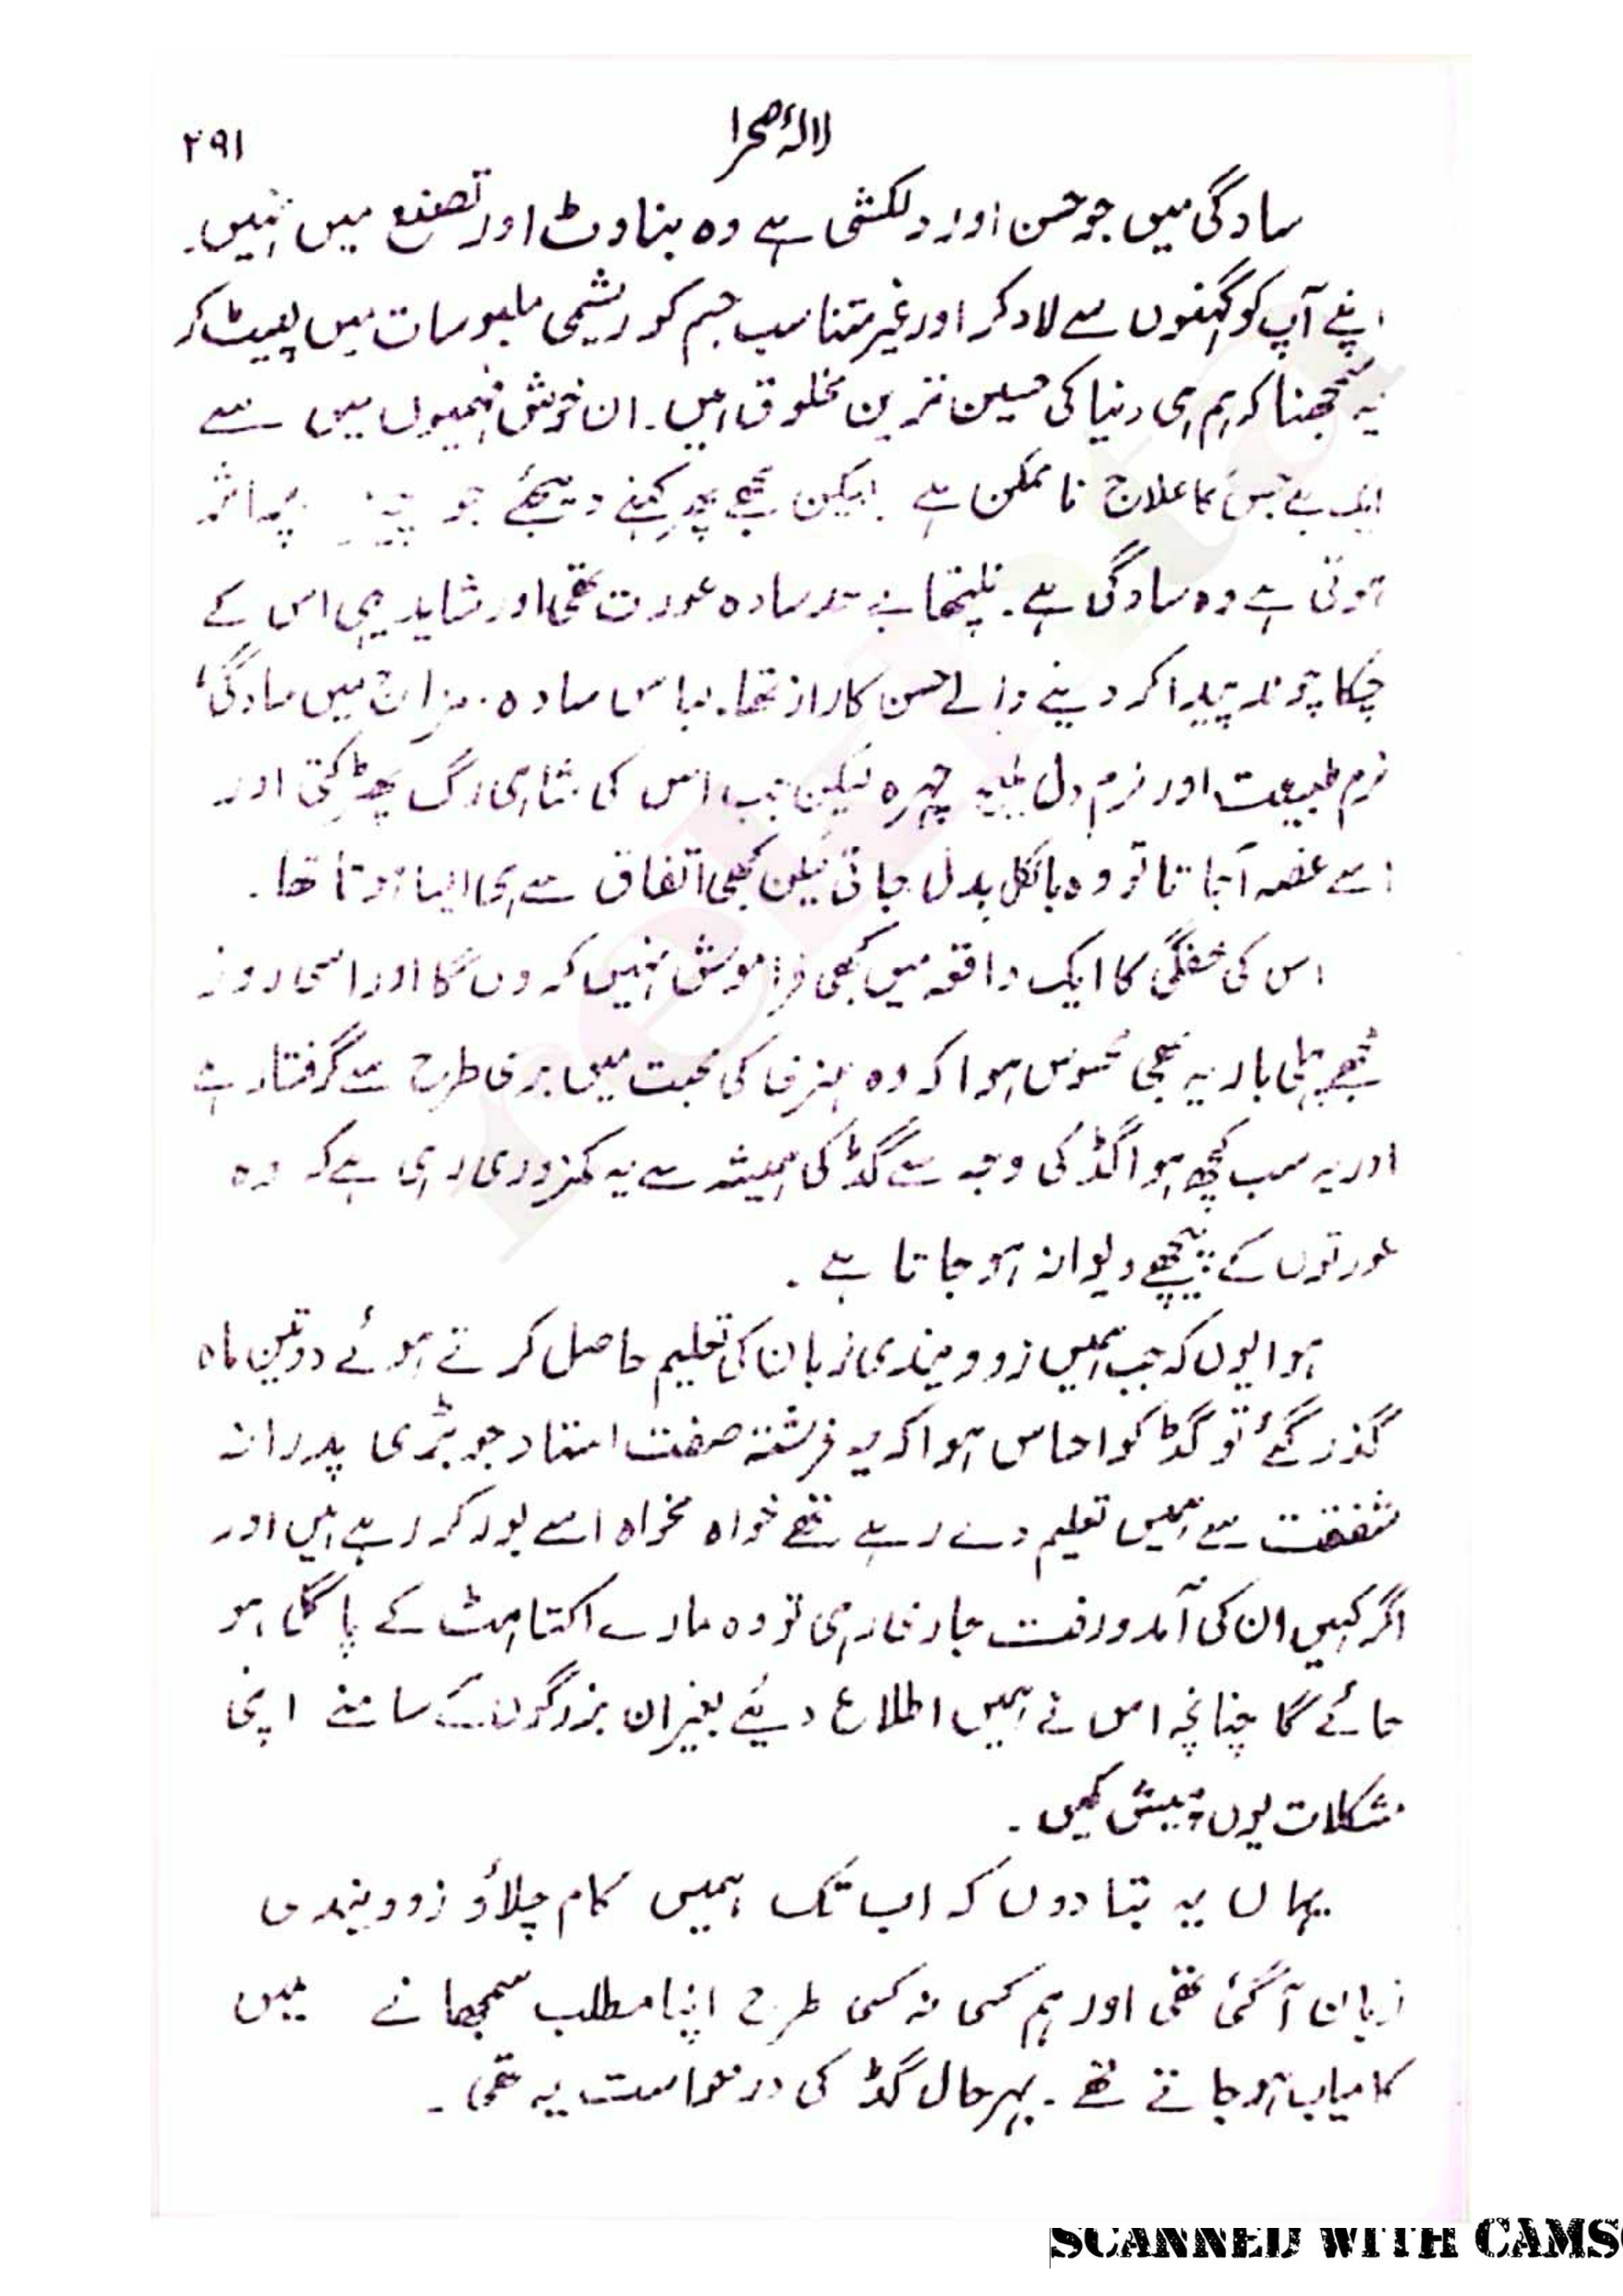 لالۂ صحرا
۲۹۱
سادگی میں جو حسن اور دلکشی ہے وہ بناوٹ اور تصنع میں نہیں۔
اپنے آپ کو گہنوں سے لاد کر اور غیر متناسب جسم کو ریشمی ملبوسات میں لپیٹ کر
یہ سمجھنا کہ ہم ہی دنیا کی حسین ترین مخلوق ہیں۔ ان خوش فہمیوں میں سے
ایک ہے جس کا علاج ناممکن ہے لیکن مجھے یہ کہنے دیجئے جو چیز
ہوتی ہے وہ سادگی ہے۔ نلپتھا بے حد سادہ عورت تھی اور شاید یہی اس کے
چکا چوند پیدا کر دینے والے حسن کا راز تھا۔ لباس سادہ۔ مزاج میں سادگی،
نرم طبیعت اور نرم دل چہرہ لیکن جب اس کی شاہی رگ پھڑکتی اور
اسے غصہ آجاتا تو وہ بالکل بدل جاتی لیکن کبھی اتفاق سے ہی ایسا ہوتا تھا۔
اس کی خفگی کا ایک واقعہ میں کبھی فراموش نہیں کروں گا اور اسی روز
مجھے پہلی بار یہ بھی محسوس ہوا کہ وہ ہنرفا کی محبت میں بری طرح سے گرفتار ہے
اور یہ سب کچھ ہوا گڈ کی وجہ سے گڈ کی ہمیشہ سے یہ کمزوری رہی ہے کہ وہ
عورتوں کے پیچھے دیوانہ ہو جاتا ہے۔
ہوا یوں کہ جب ہمیں زوویندی زبان کی تعلیم حاصل کرتے ہوئے دو تین ماہ
گذر گئے تو گڈ کو احساس ہوا کہ یہ فرشتہ صفت استاد جو بڑی پدرانہ
شفقت سے ہمیں تعلیم دے رہے تھے خواہ مخواہ اسے بور کر رہے ہیں اور
اگر کہیں ان کی آمدورفت جاری رہی تو وہ مارے اکتاہٹ کے پاگل ہو
جائے گا چنانچہ اس نے ہمیں اطلاع دیئے بغیر ان بزرگوں کے سامنے اپنی
مشکلات یوں پیش کیں۔
یہاں یہ بتا دوں کہ اب تک ہمیں کام چلاؤ زوویندی
زبان آ گئی تھی اور ہم کسی نہ کسی طرح اپنا مطلب سمجھانے میں
کامیاب ہو جاتے تھے۔ بہرحال گڈ کی درخواست یہ تھی۔
SCANNED WITH CAMS